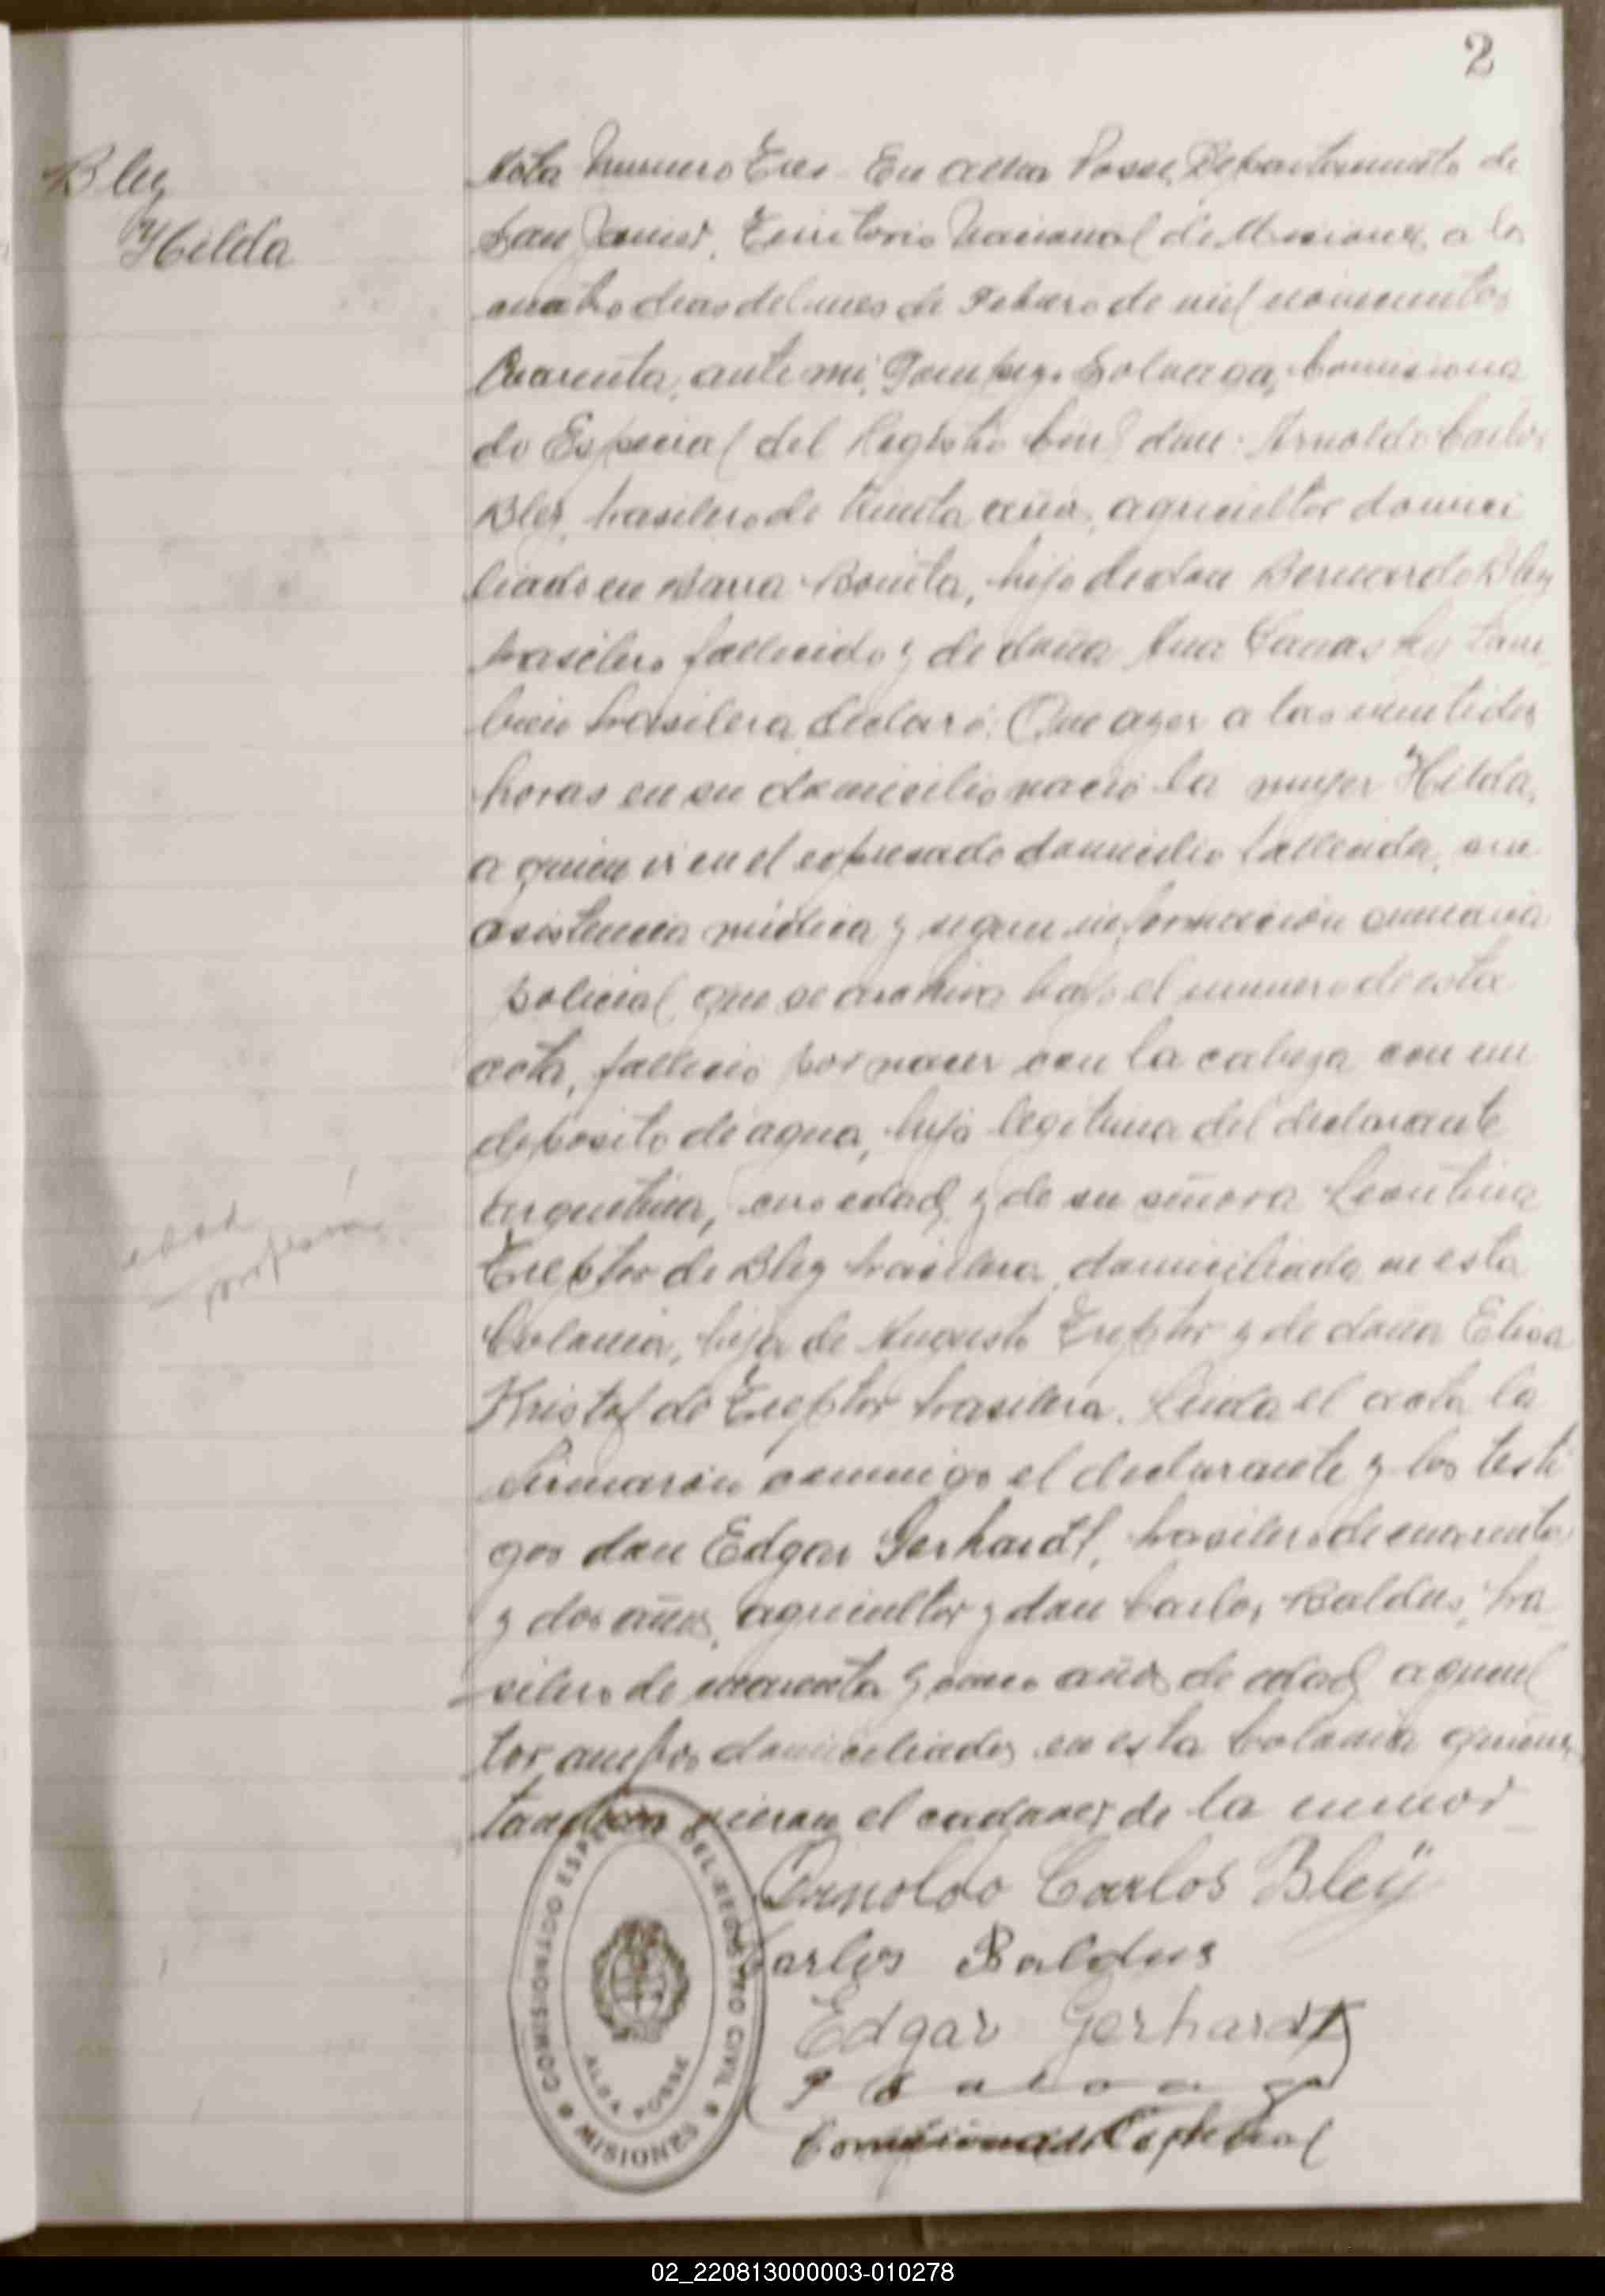 2
Bley
Hilda
Acta Numero Tres. En Alba Posse, Departamento de
San Javier, Territorio Nacional de Misiones, a los
cuatro dias del mes de Febrero de mil novecientos
Cuarenta, ante mi, Pompeyo Soloaga, Comisiona
do Especial del Registro Civil don Arnoldo Carlos
Bley, brasilero de treinta años, agricultor domici
liado en Barra Bonita, hijo de don Bernardo Bley
brasilero fallecido y de doña Ana tam
bien brasilera declaró: Que ayer a las veintidos
horas en su domicilio nació la mujer Hilda,
a quien vi en el expresado domicilio fallecida, sin
asistencia médica y segun información sumaria
policial que se archiva bajo el numero de esta
acta, falleció por nacer con la cabeza con un
deposito de agua, hija legitima del declarante
argentina, cuya edad y de su señora Leontina
Treptor de Bley brasilera, domiciliada en esta
Colonia, hija de Augusto Treptor y de doña Elisa
Kristof de Treptor brasilera. Leida el acta la
firmaron conmigo el declarante y los testi
gos don Edgar Gerhardt, brasilero de cuarenta
y dos años, agricultor y don Carlos Baldus, bra
silero de cuarenta y cinco años de edad agricul
tor ambos domiciliados en esta Colonia quienes
tambien vieron el cadaver de la menor
edad
profesion
Arnoldo Carlos Bley
Carlos Baldus
Edgar Gerhardt
P Soloaga
Comisionado Especial
COMISIONADO ESPECIAL DEL REGISTRO CIVIL
ALBA POSSE
MISIONES
02_220813000003-010278